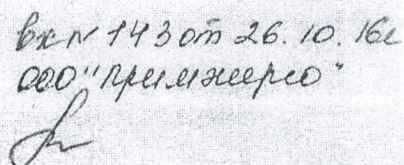 вх № 143 от 26.10.16г
ООО "Примэнерго"